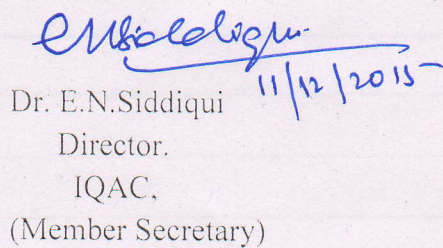 ENSiddiqui
11/12/2015
Dr. E.N.Siddiqui
Director.
IQAC,
(Member Secretary)